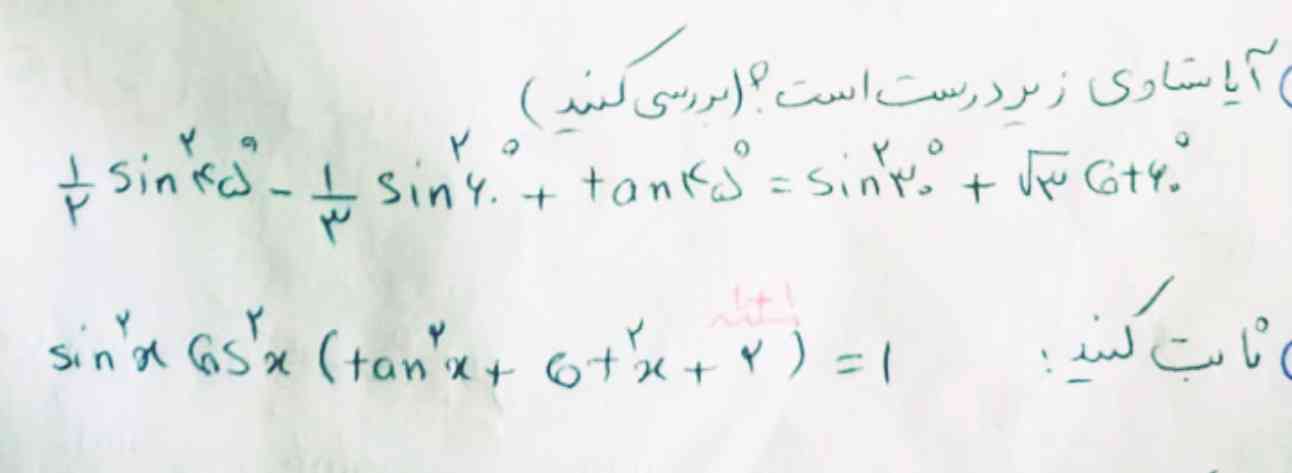 آیا تساوی زیر درست است؟ (بررسی کنید)
۱/۲ sin²۴۵° - ۱/۳ sin²۶۰° + tan۴۵° = sin²۳۰° + √۳ Cot۶۰°
۱+۱
ثابت کنید: sin²x Cos²x (tan²x + Cot²x + ۲) = ۱